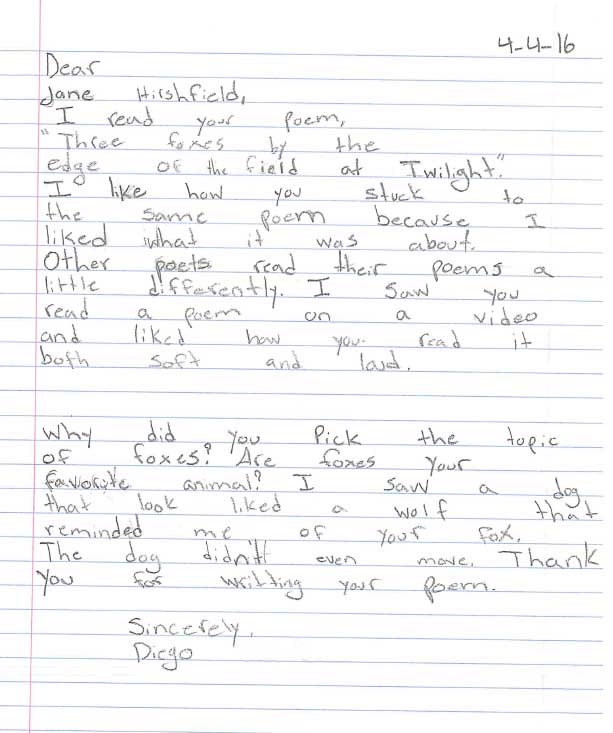 4-4-16
Dear
Jane Hirshfield,
I read your poem,
"Three foxes by the
edge of the field at Twilight."
I like how you stuck to
the same poem because I
liked what it was about.
Other poets read their poems a
little differently. I saw you
read a poem on a video
and liked how you read it
both soft and loud.
Why did you Pick the topic
of foxes? Are foxes your
favoryte animal? I saw a dog
that look liked a wolf that
reminded me of your fox.
The dog didn't even move. Thank
you for writting your poem.
Sincerely,
Diego